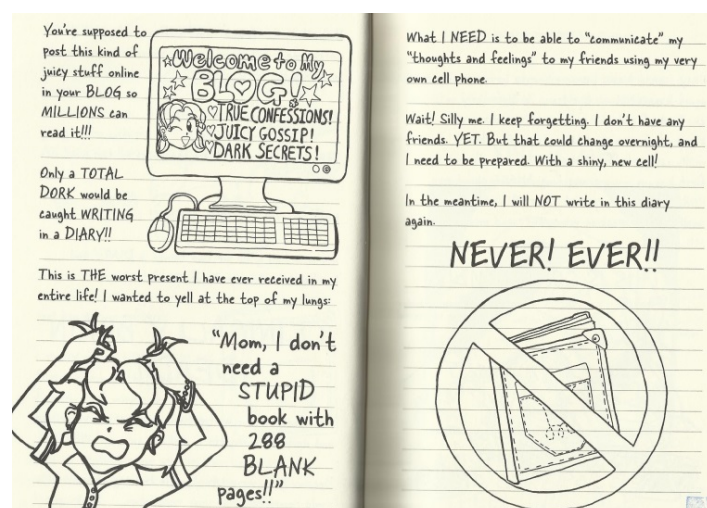 You're supposed to
post this kind of
juicy stuff online
in your BLOG so
MILLIONS can
read it!!!
Welcome to My
BLOG!
TRUE CONFESSIONS!
JUICY GOSSIP!
DARK SECRETS!
Only a TOTAL
DORK would be
caught WRITING
in a DIARY!!
This is THE worst present I have ever received in my
entire life! I wanted to yell at the top of my lungs:
"Mom, I don't
need a
STUPID
book with
288
BLANK
pages!!"
What I NEED is to be able to "communicate" my
"thoughts and feelings" to my friends using my very
own cell phone.
Wait! Silly me. I keep forgetting. I don't have any
friends. YET. But that could change overnight, and
I need to be prepared. With a shiny, new cell!
In the meantime, I will NOT write in this diary
again.
NEVER! EVER!!